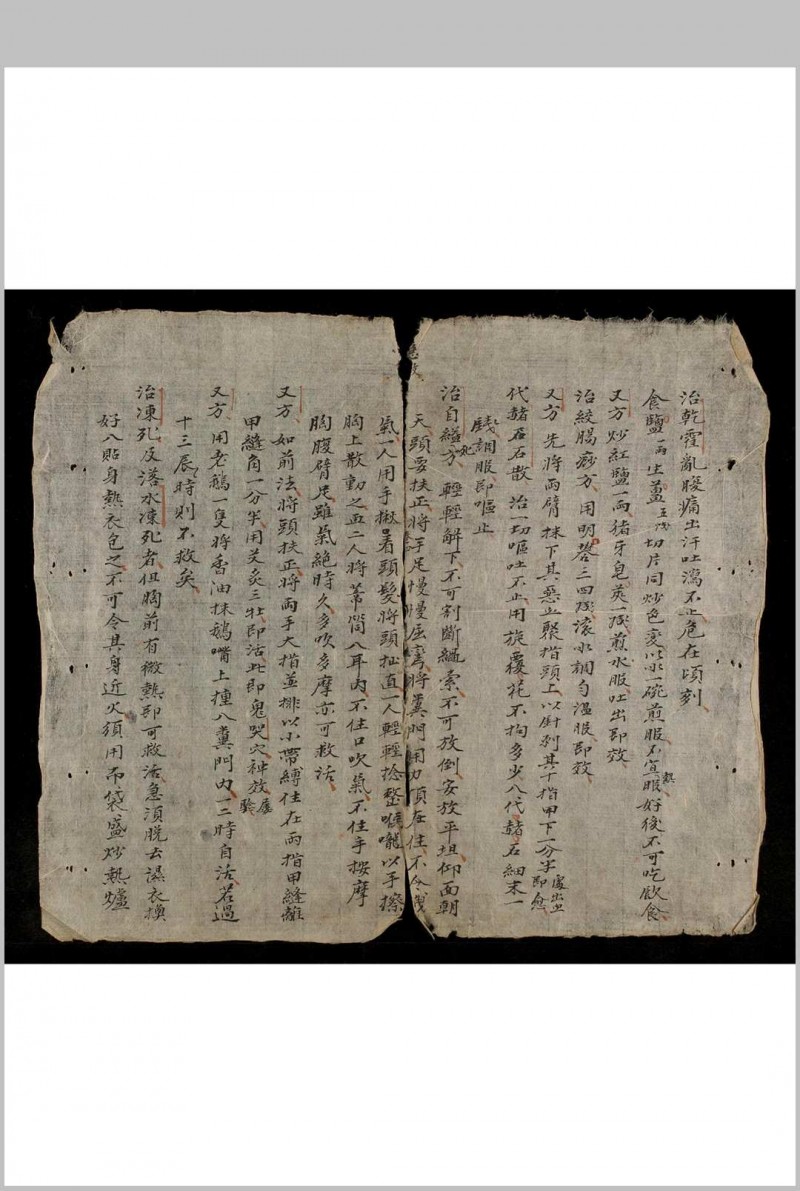 治乾霍亂腹痛出汗吐瀉不止危在頃刻
食鹽一兩生薑五錢切片同炒色变以水一碗煎服不宜熱服好後不可吃飲食
又方炒紅鹽一兩猪牙皂莢一錢煎水服吐出即效
治絞腸痧方用明礬三四錢滚水調匀温服即效
又方先將兩臂抹下其惡血聚指頭上以針刺其十指甲下一分半處出血即愈
代赭石石散治一切嘔吐不止用旋覆花不拘多少入代赭石細末一
錢調服即嘔止
治自縊方輕輕解下不可割斷繩索不可放倒安放平坦仰面朝
天頭要扶正將手足慢慢屈彎將糞門用力頂住不令洩
氣一人用手揪着頭髮將頭扯直一人輕輕捻整喉嚨以手擦
胸上散動之再二人將葦筒入耳内不住口吹氣不住手按摩
胸腹臂足雖氣絶時久多吹多摩亦可救活
又方如前法將頭扶正將兩手大指並排以小帶縛住在兩指甲縫離
甲縫角一分半用艾灸三壮即活此即鬼哭穴神放屋
又方用老鵝一隻將香油抹鵝嘴上揷入糞門内一二時自活若過
十三辰時則不救矣
治凍死及落水凍死者但胸前有微熱即可救活急須脱去濕衣換
好人貼身熱衣包之不可令其身近火須用布袋盛炒熱爐